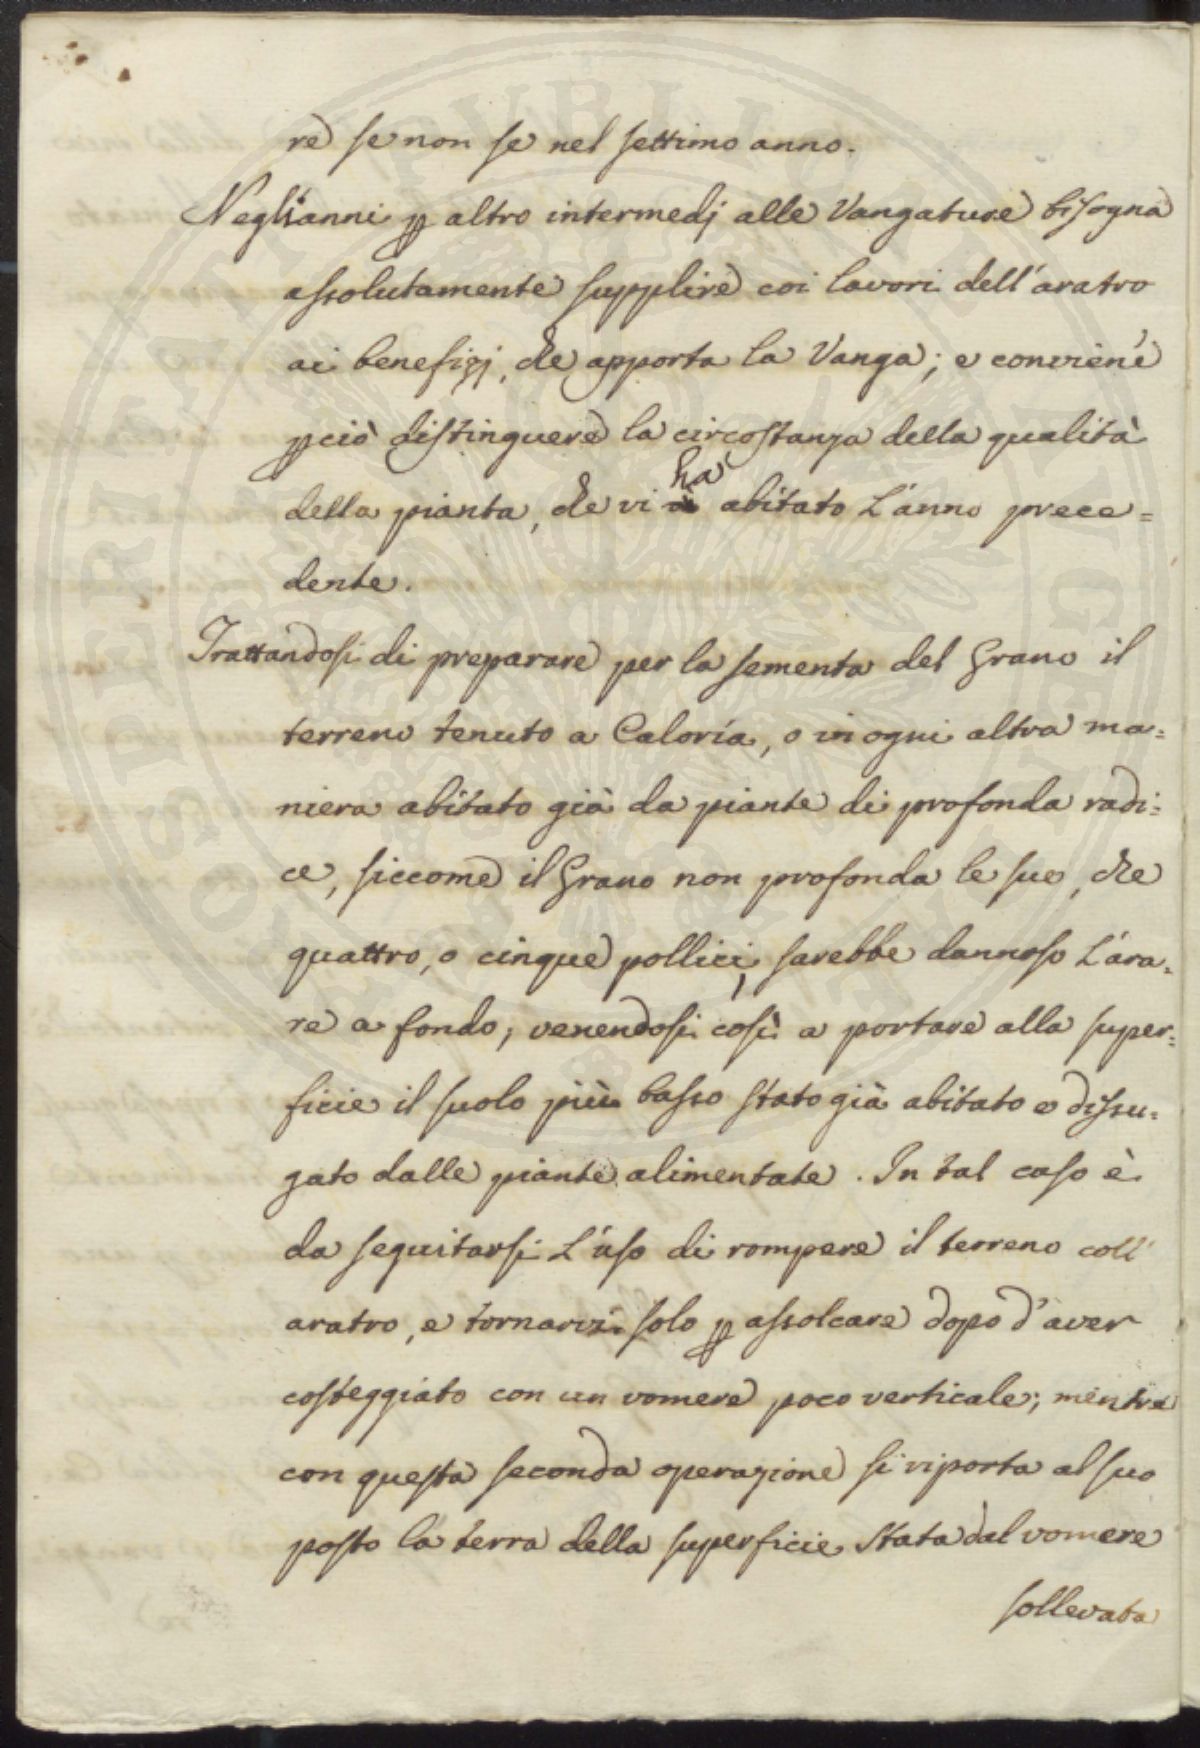 re se non se nel settimo anno.
Negl'anni ꝑ altro intermedj alle Vangature bisogna
assolutamente supplire coi lavori dell'aratro
ai benefizj, che apporta la Vanga; e convien'è
ꝑciò distinguere la circostanza della qualità
ha
della pianta, che vi à abitato L'anno prece=
dente.
Trattandosi di preparare per la sementa del Grano il
terreno tenuto a Caloría, o in ogni altra ma=
niera abitato già da piante di profonda radi=
ce, siccome il Grano non profonda le sue, che
quattro, o cinque pollici, sarebbe dannoso L'ara=
re a fondo, venendosi così a portare alla super=
ficie il suolo più basso stato già abitato e dissu=
gato dalle piante alimentate. In tal caso è
da seguitarsi L'uso di rompere il terreno coll'
aratro, e tornarvi solo ꝑ assolcare dopo d'aver
costeggiato con un vomere poco verticale; mentre
con questa seconda operazione si riporta al suo
posto la terra della superficie stata dal vomere
sollevata